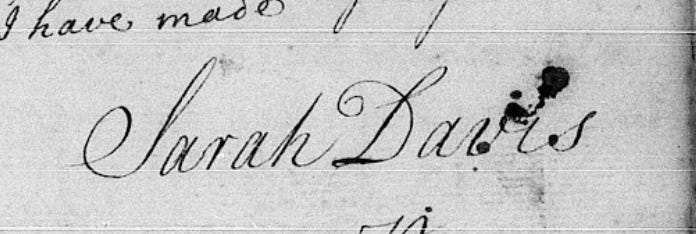 I have made
Sarah Davis